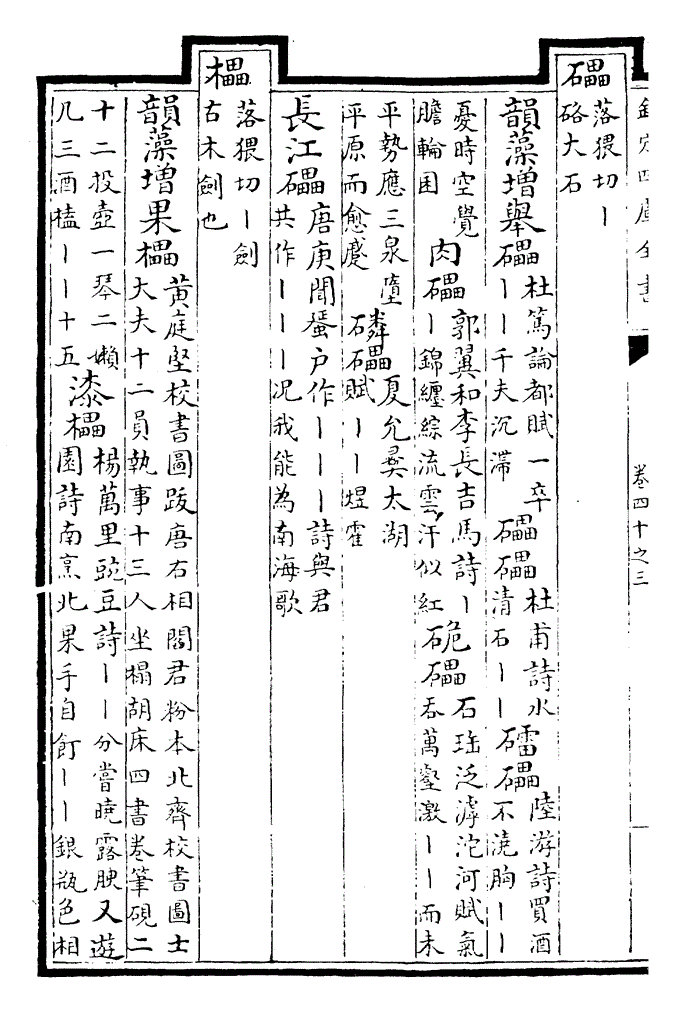 欽定四庫全書
卷四十之三
礧
落猥切丨
硌大石
韻藻增舉礧
杜篤論都賦一卒
丨丨千夫沉滯
礧礧
杜甫詩水
清石丨丨
礌礧
陸游詩買酒
不澆胸丨丨
憂時空覺
膽輪囷
肉礧
郭翼和李長吉馬詩丨
丨錦纏綜流雲汗似紅
硊礧
石珤泛滹沱河賦氣
吞萬壑激丨丨而未
平勢應三泉墮
平原而愈蹙
磷礧
夏允彞太湖
賦丨丨煜霍
長江礧
唐庚聞蜑户作丨丨丨詩與君
共作丨丨丨况我能為南海歌
櫑
落猥切丨劍
古木劍也
韻藻增果櫑
黄庭堅校書圖跋唐右相閻君粉本北齊校書圖士
大夫十二員執事十三人坐榻胡床四書卷筆硯二
十二投壺一琴二懶
几三酒榼丨丨十五
漆櫑
楊萬里豌豆詩丨丨分嘗曉露腴又遊
園詩南烹北果手自飣丨丨銀瓶色相